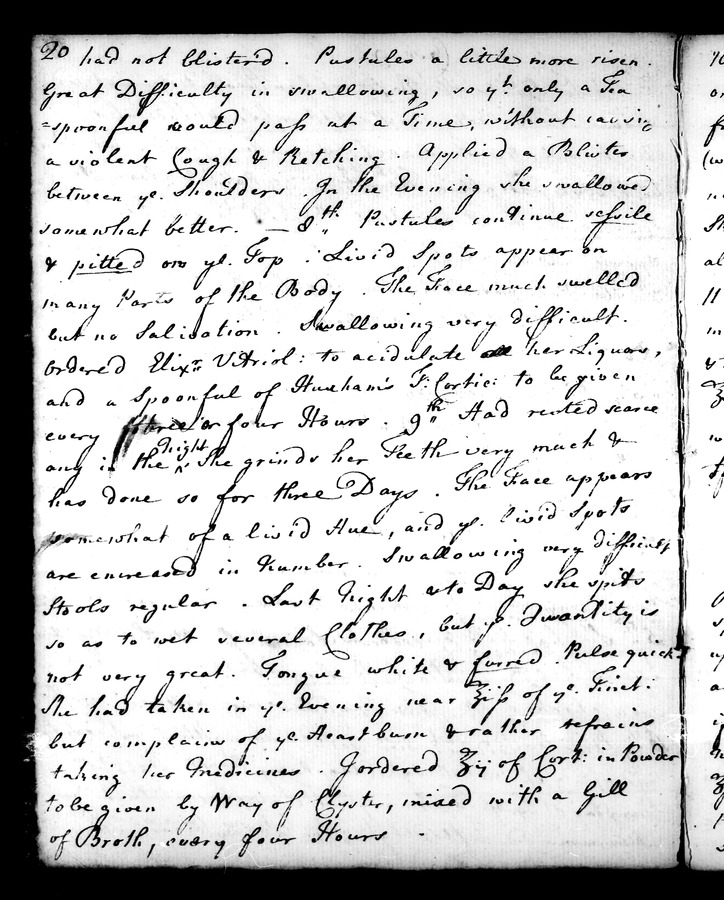 20 had not blister'd. Pustules a little more risen.
Great Difficulty in swallowing, so yt. only a Tea
=spoonful would pass at a Time, without causing
a violent Cough & Retching. Applied a Blister
between ye. Shoulders. In the Evening she swallowed
somewhat better. — 8th. Pustules continue sessile
& pitted on ye. Top. Livid Spots appear on
many Parts of the Body. The Face much swelled
but no Salivation. Swallowing very difficult.
Ordered Elixr. Vitriol: to acidulate all her Liquors,
and a Spoonful of Huxham's T: Cortic: to be given
every three or four Hours. 9th. Had rested scarce
any in the night She grinds her Teeth very much &
has done so for three Days. The Face appears
somewhat of a livid Hue, and ye. livid Spots
are encreased in Number. Swallowing very difficult
Stools regular. Last Night & to Day she spits
so as to wet several Clothes, but ye. Quantity is
not very great. Tongue white & furred. Pulse quick.
She had taken in ye. Evening near ℥iſs of ye. Tinct:
but complains of ye. Heartburn & rather refrains
taking her Medicines. I ordered ʒij of Cort: in Powder
to be given by Way of Clyster, mixed with a Gill
of Broth, every four Hours.